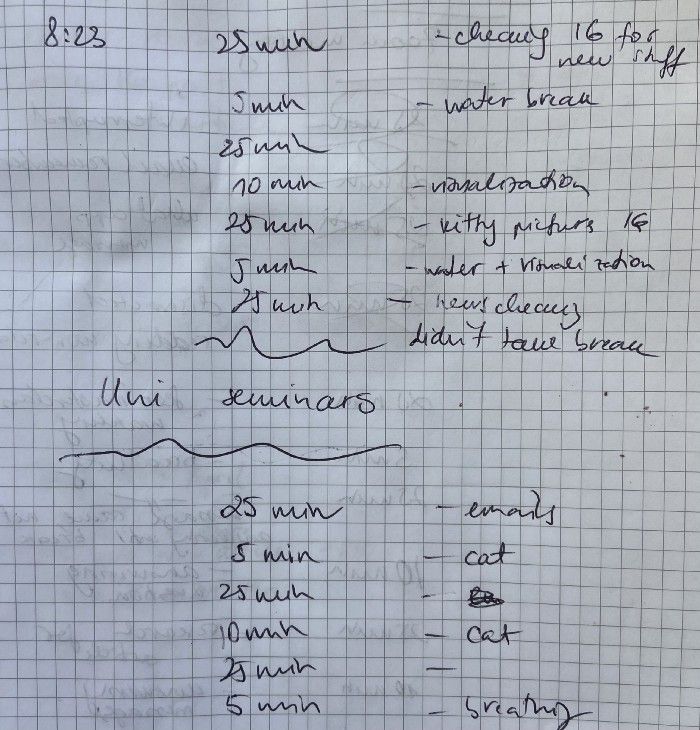 8:23 25 min - checking IG for
new stuff
5 min - water break
25 min
10 min - visualization
25 min - kitty pictures IG
5 min - water + visualization
25 min - news checking
didn't take break
Uni seminars
25 min - emails
5 min - cat
25 min -
10 min - cat
25 min -
5 min - breathing